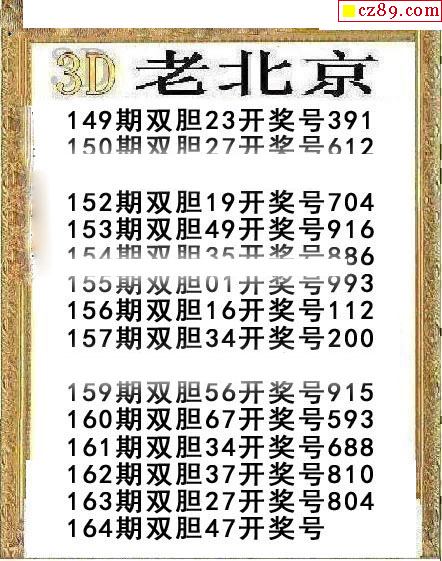 cz89.com
3D 老北京
149期双胆23开奖号391
150期双胆27开奖号612
152期双胆19开奖号704
153期双胆49开奖号916
154期双胆35开奖号886
155期双胆01开奖号993
156期双胆16开奖号112
157期双胆34开奖号200
159期双胆56开奖号915
160期双胆67开奖号593
161期双胆34开奖号688
162期双胆37开奖号810
163期双胆27开奖号804
164期双胆47开奖号